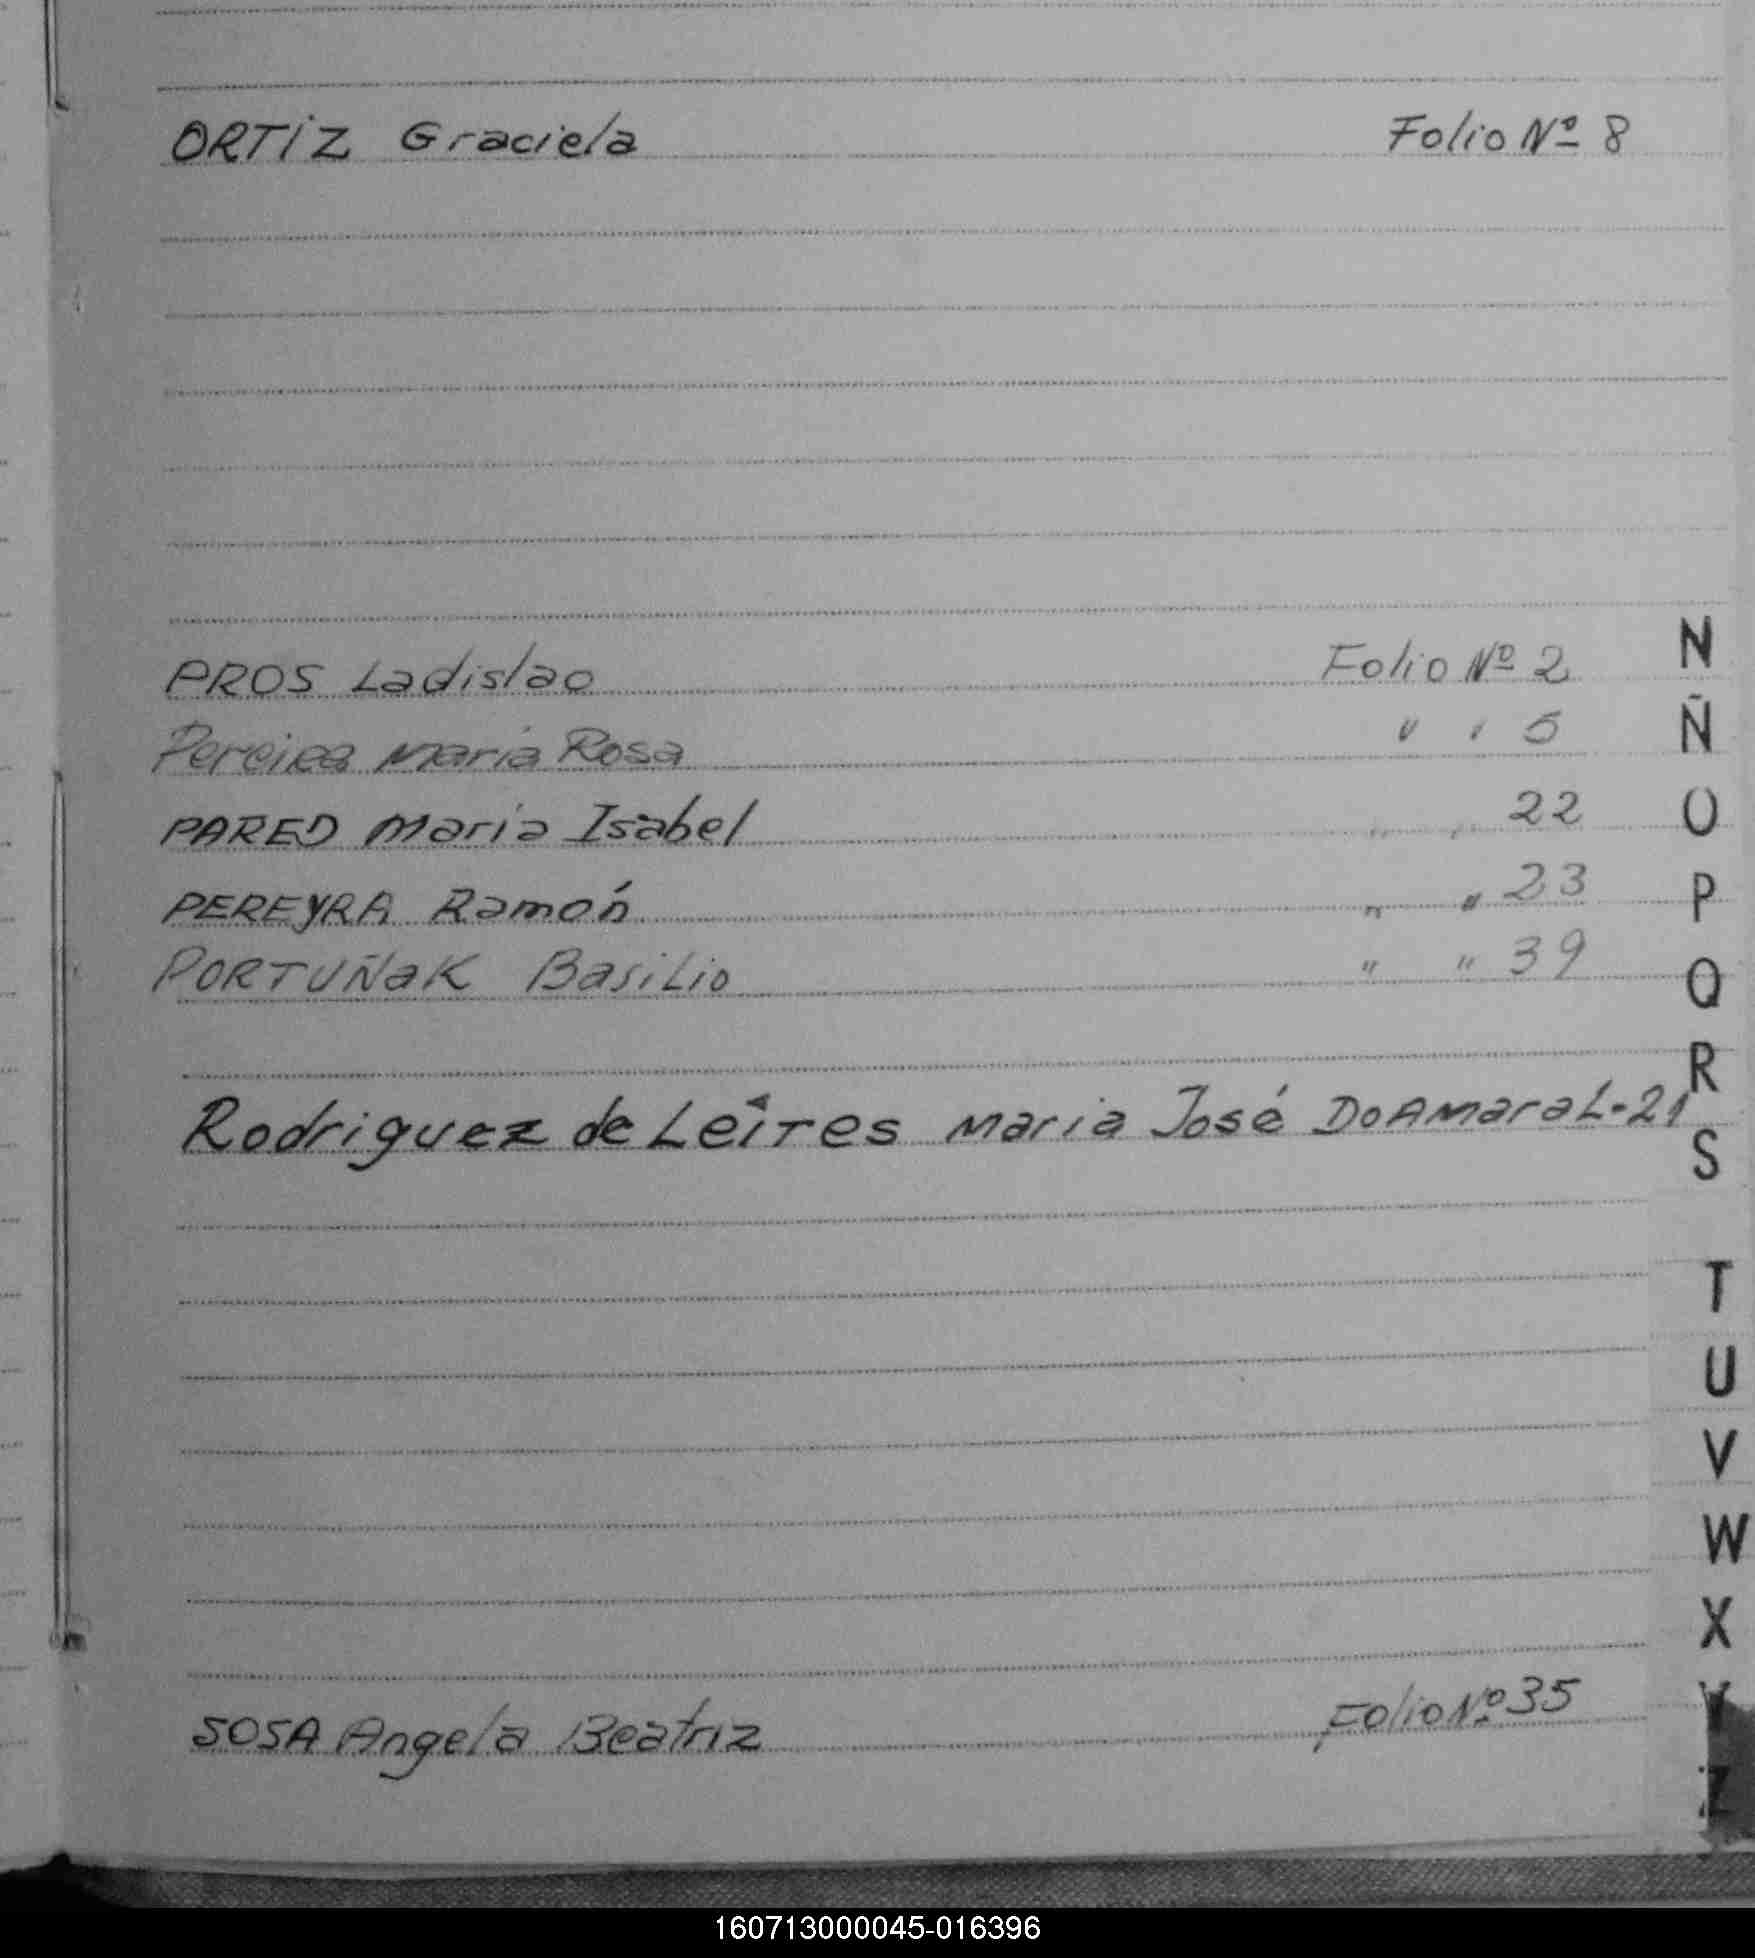 ORTIZ Graciela Folio Nº 8
PROS Ladislao Folio Nº 2
Pereira Maria Rosa " " 5
PARED Maria Isabel " " 22
PEREYRA Ramón " " 23
PORTUÑAK Basilio " " 39
Rodriguez de Leires Maria José DoAmaral-21
SOSA Angela Beatriz Folio Nº 35
N
Ñ
O
P
Q
R
S
T
U
V
W
X
Y
Z
160713000045-016396